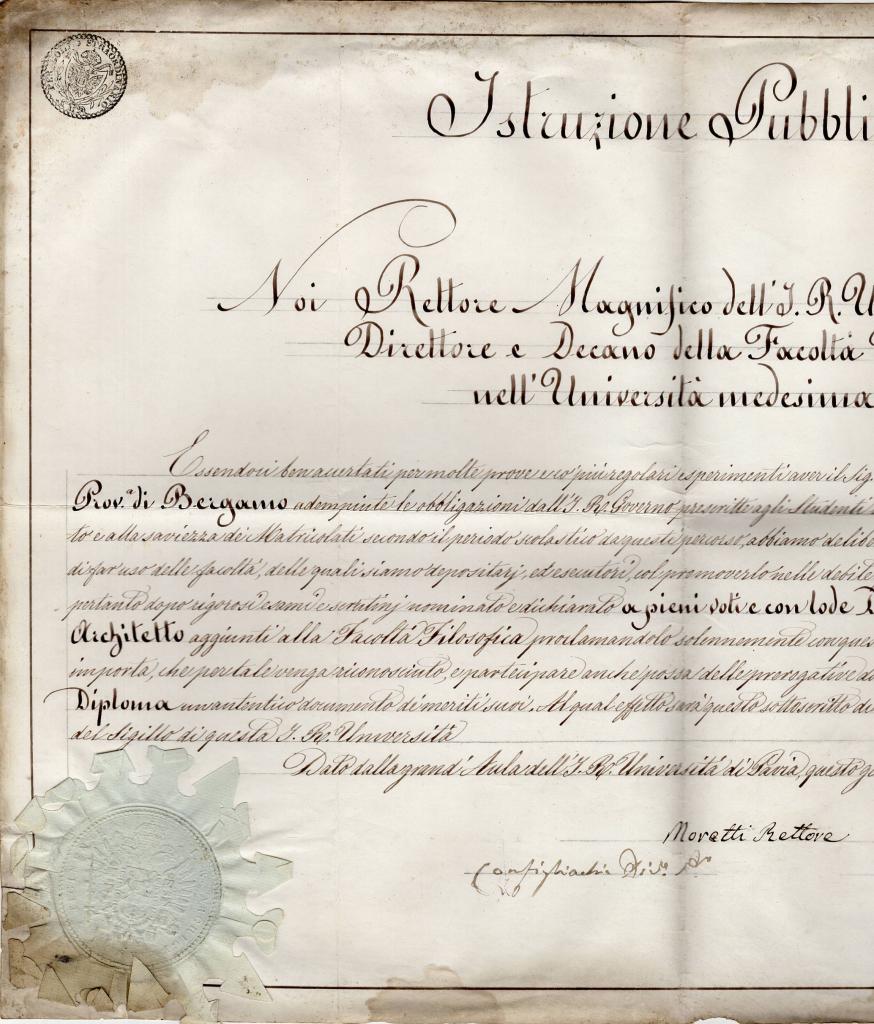 PER BOLLO STRAORDINARIO
Istruzione Pubbli
Noi Rettore Magnifico dell' I. R. U
Direttore e Decano della Facoltà
nell' Università medesima
Essendoci ben accertati per molte prove e co' più regolari esperimenti aver il Sig.
Prov.ª di Bergamo adempiute le obbligazioni dall' I. R. Governo prescritte agli Studenti
to e alla saviezza di Matricolati secondo il periodo scolastico da questi percorso, abbiamo delibe
di far uso delle facoltà, delle quali siamo depositarj, ed esecutori, col promoverlo nelle debite
pertanto dopo rigorosi esami e scrutinj nominato e dichiarato a pieni voti e con lode
Architetto aggiunti alla Facoltà Filosofica proclamandolo solennemente con ques
importa, che per tale venga riconosciuto, e partecipare anche possa delle prerogative
Diploma un autentico documento di meriti suoi. Al qual effetto sarà questo sottoscritto
del Sigillo di questa I. R. Università
Dato dalla grand' Aula dell' I. R. Università di Pavia, questo
Moretti Rettore
Configliachi